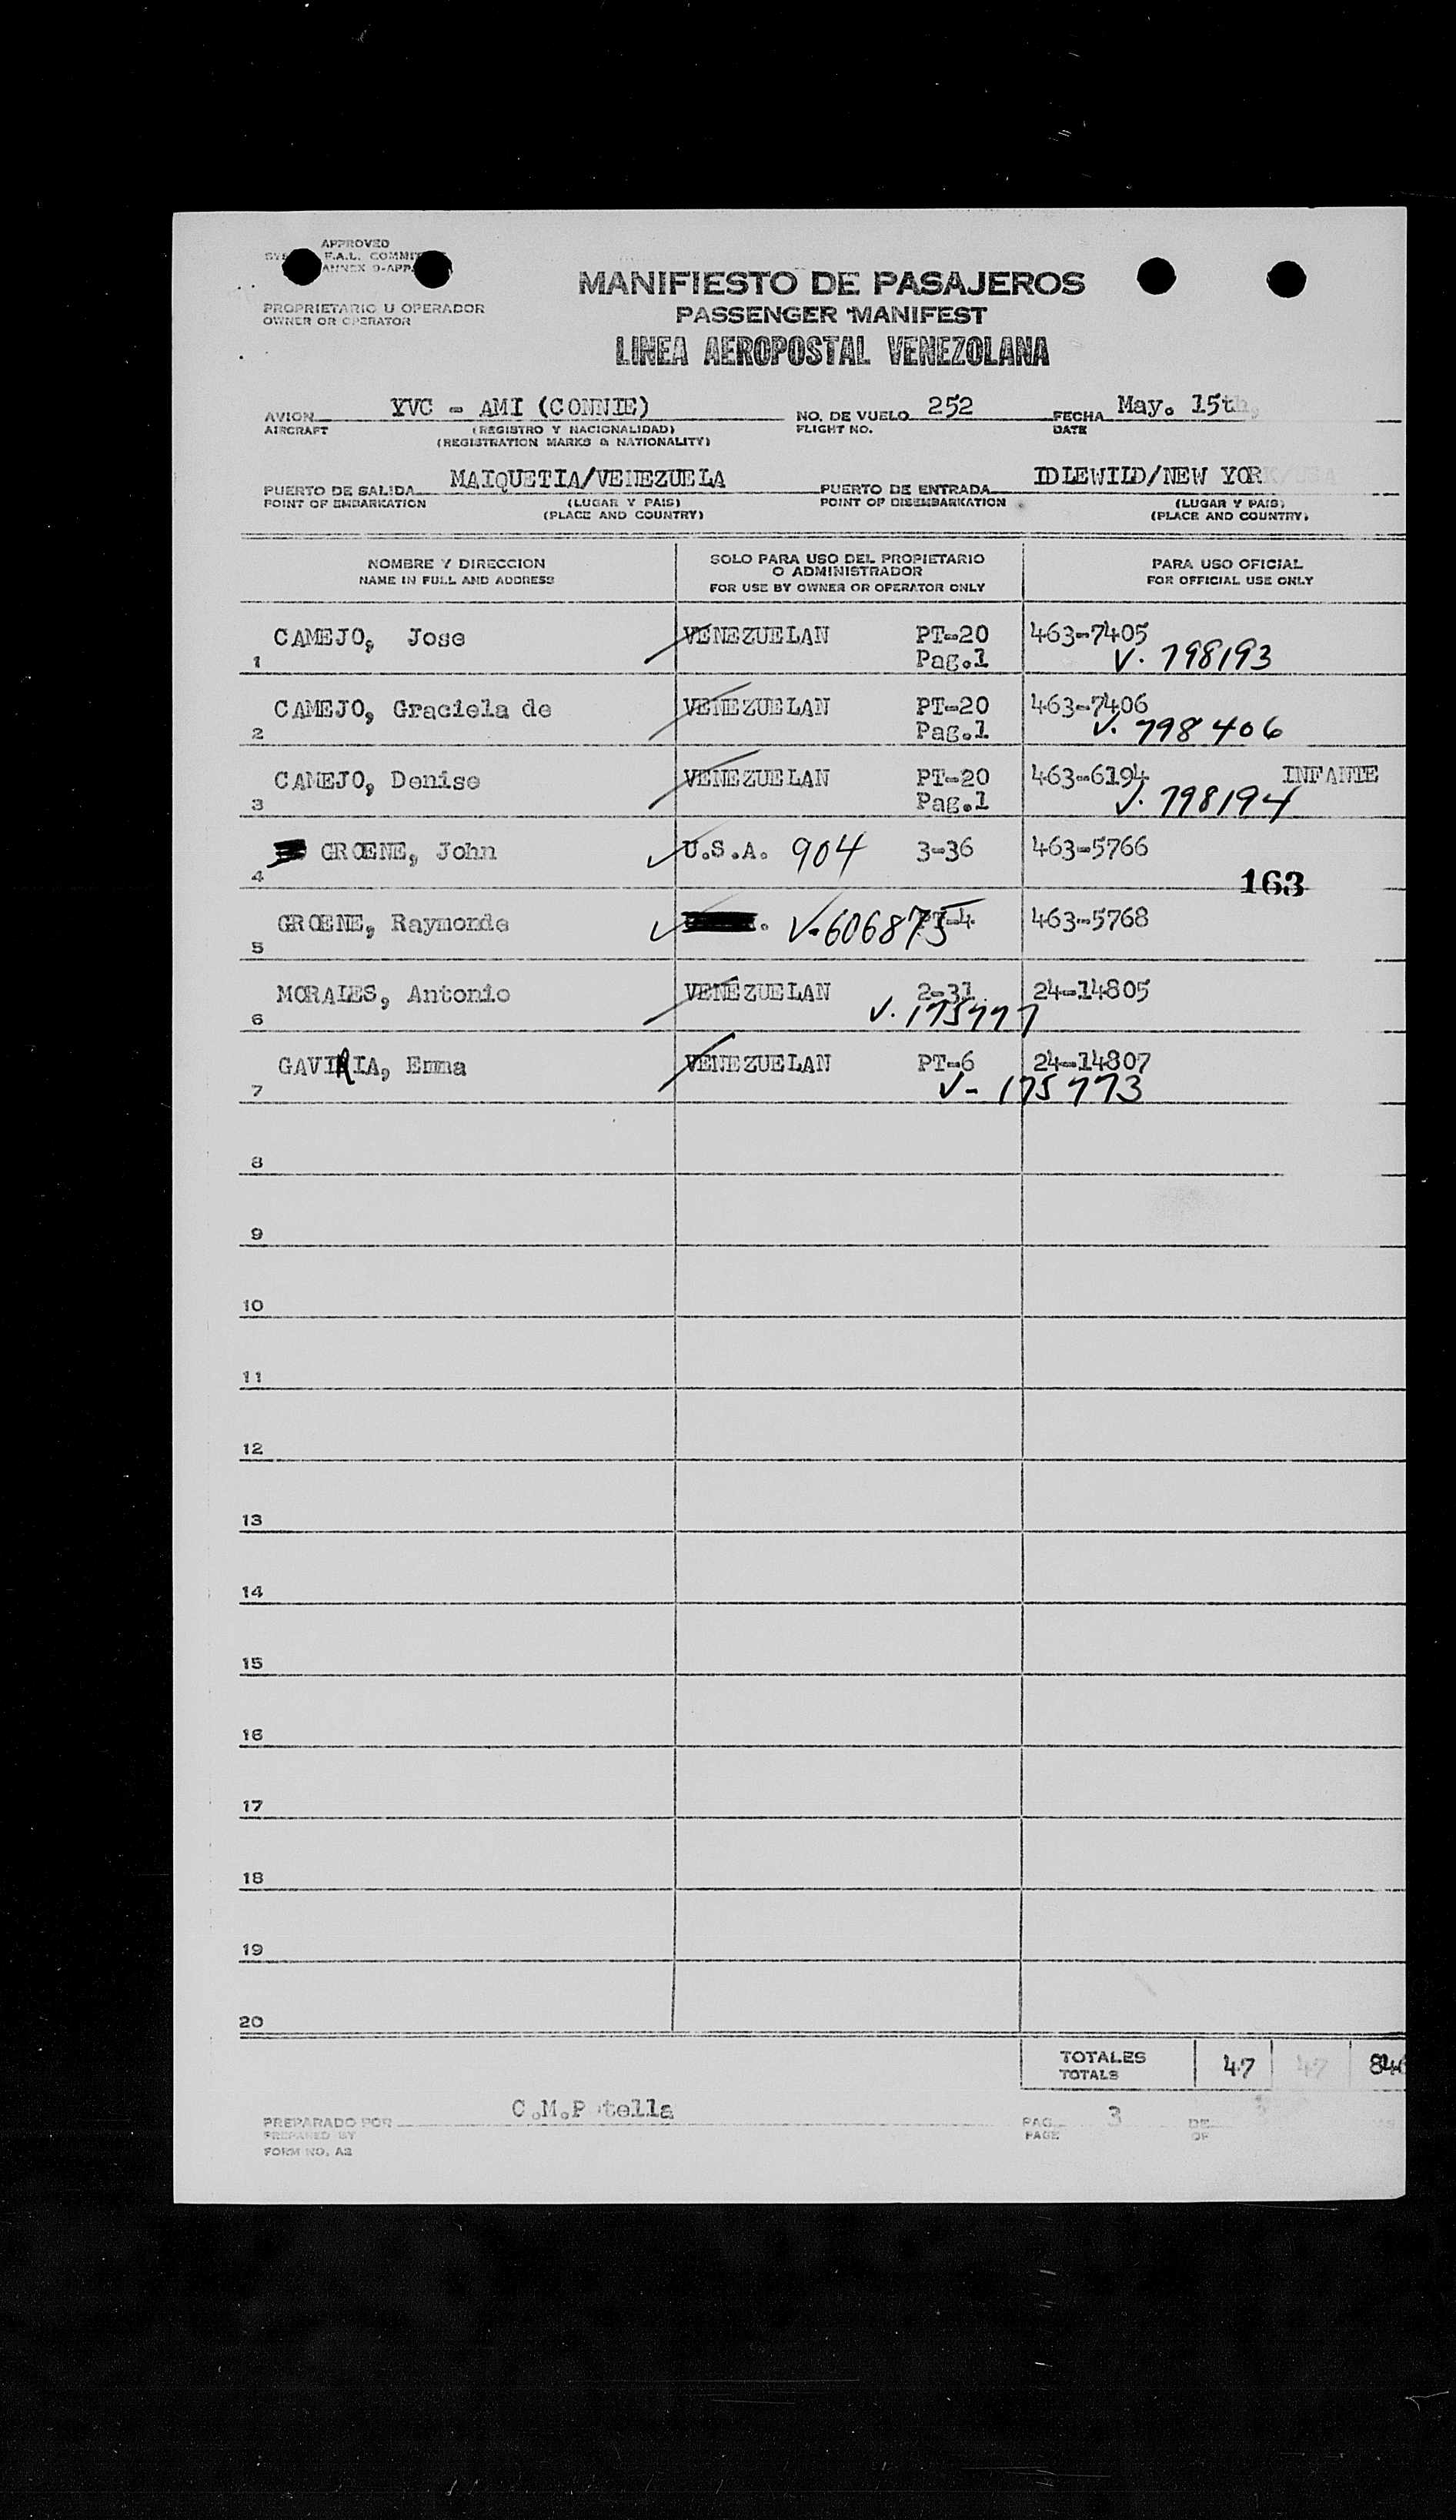 APPROVED
F.A.L. COMMIT
ANNEX 9-APP.
MANIFIESTO DE PASAJEROS
PROPRIETARIO U OPERADOR
OWNER OR OPERATOR
PASSENGER MANIFEST
LINEA AEROPOSTAL VENEZOLANA
AVION YVC - AMI (CONNIE) NO. DE VUELO 252 FECHA May. 15th,
AIRCRAFT (REGISTRO Y NACIONALIDAD) FLIGHT NO. DATE
(REGISTRATION MARKS & NATIONALITY)
PUERTO DE SALIDA MAIQUETIA/VENEZUELA PUERTO DE ENTRADA IDLEWILD/NEW YORK/USA
POINT OF EMBARKATION (LUGAR Y PAIS) POINT OF DISEMBARKATION (LUGAR Y PAIS)
(PLACE AND COUNTRY) (PLACE AND COUNTRY)
NOMBRE Y DIRECCION SOLO PARA USO DEL PROPIETARIO PARA USO OFICIAL
O ADMINISTRADOR
NAME IN FULL AND ADDRESS FOR USE BY OWNER OR OPERATOR ONLY FOR OFFICIAL USE ONLY
CAMEJO, Jose VENEZUELAN PT-20 463-7405
1 Pag.1 V. 798193
CAMEJO, Graciela de VENEZUELAN PT-20 463-7406
2 Pag.1 V. 798406
CAMEJO, Denise VENEZUELAN PT-20 463-6194 INFANTE
3 Pag.1 V. 798194
GROENE, John U.S.A. 904 3-36 463-5766
4 163
GROENE, Raymonde V-606875 PT-4 463-5768
5
MORALES, Antonio VENEZUELAN 2-31 24-14805
6 V. 175777
GAVIRIA, Emma VENEZUELAN PT-6 24-14807
7 V- 175773
8
9
10
11
12
13
14
15
16
17
18
19
20
TOTALES 47 47 846
TOTALS
PREPARADO POR C.M.P tella PAG. 3 DE 3
PREPARED BY PAGE OF
FORM NO. A2